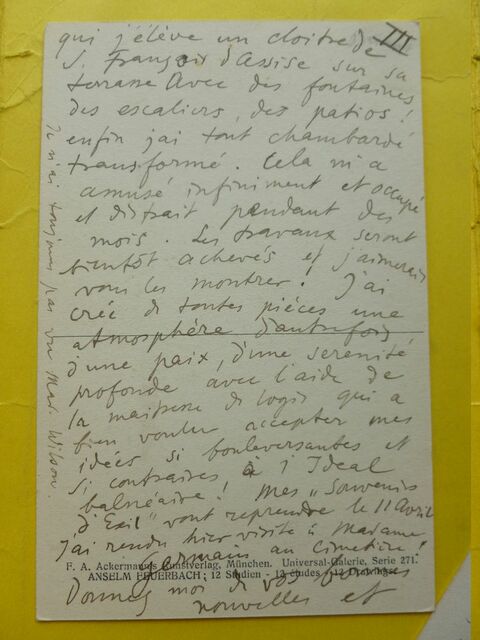 III
qui j'élève un cloître de
S. François d'Assise sur sa
terrasse avec des fontaines
des escaliers, des patios!
enfin j'ai tout chambardé
transformé. Cela m'a
amusé infiniment et occupé
et distrait pendant des
mois. Les travaux seront
bientôt achevés et j'aimerais
vous les montrer! J'ai
créé de toutes pièces une
atmosphère d'autrefois
d'une paix, d'une serenité
profonde avec l'aide de
la maitresse de logis qui a
bien voulu accepter mes
idées si bouleversantes et
si contraires à l'Ideal
balnéaire! Mes „Souvenirs
d'Exil" vont reprendre le 11 Avril
j'ai rendu hier visite à Madame
Germain au Cimetière!
F. A. Ackermanns Kunstverlag, München. Universal-Galerie, Serie 271.
ANSELM FEUERBACH; 12 Studien - 12 études - 12 Drawings
Donnez moi de vos bonnes
nouvelles et
Je n'ai toujours pas vu Mad. Wilson.